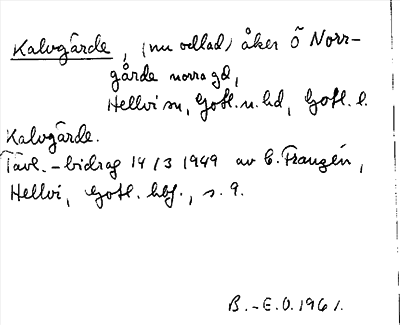 Kalvgårde, (nu odlad) åker Ö Norr-
gårde norra gd,
Hellvi sn, Gotl. n. hd, Gotl. l.
Kalvgårde.
Tävl.-bidrag 14/3 1949 av E. Franzén,
Hellvi, Gotl. hbf., s. 9.
B.-E.O. 1961.